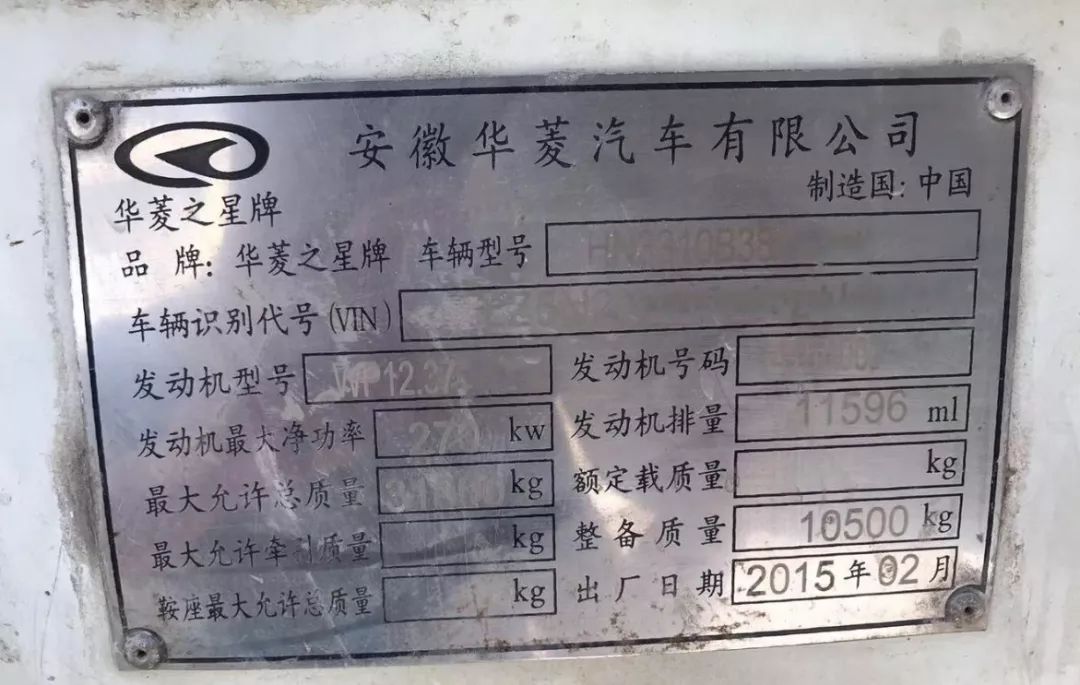 安徽华菱汽车有限公司
制造国:中国
华菱之星牌
品 牌: 华菱之星牌 车辆型号
车辆识别代号(VIN)
发动机型号 发动机号码
发动机最大净功率 kw 发动机排量 11596 ml
最大允许总质量 kg 额定载质量 kg
最大允许牵引质量 kg 整备质量 10500 kg
鞍座最大允许总质量 kg 出厂日期 2015年02月